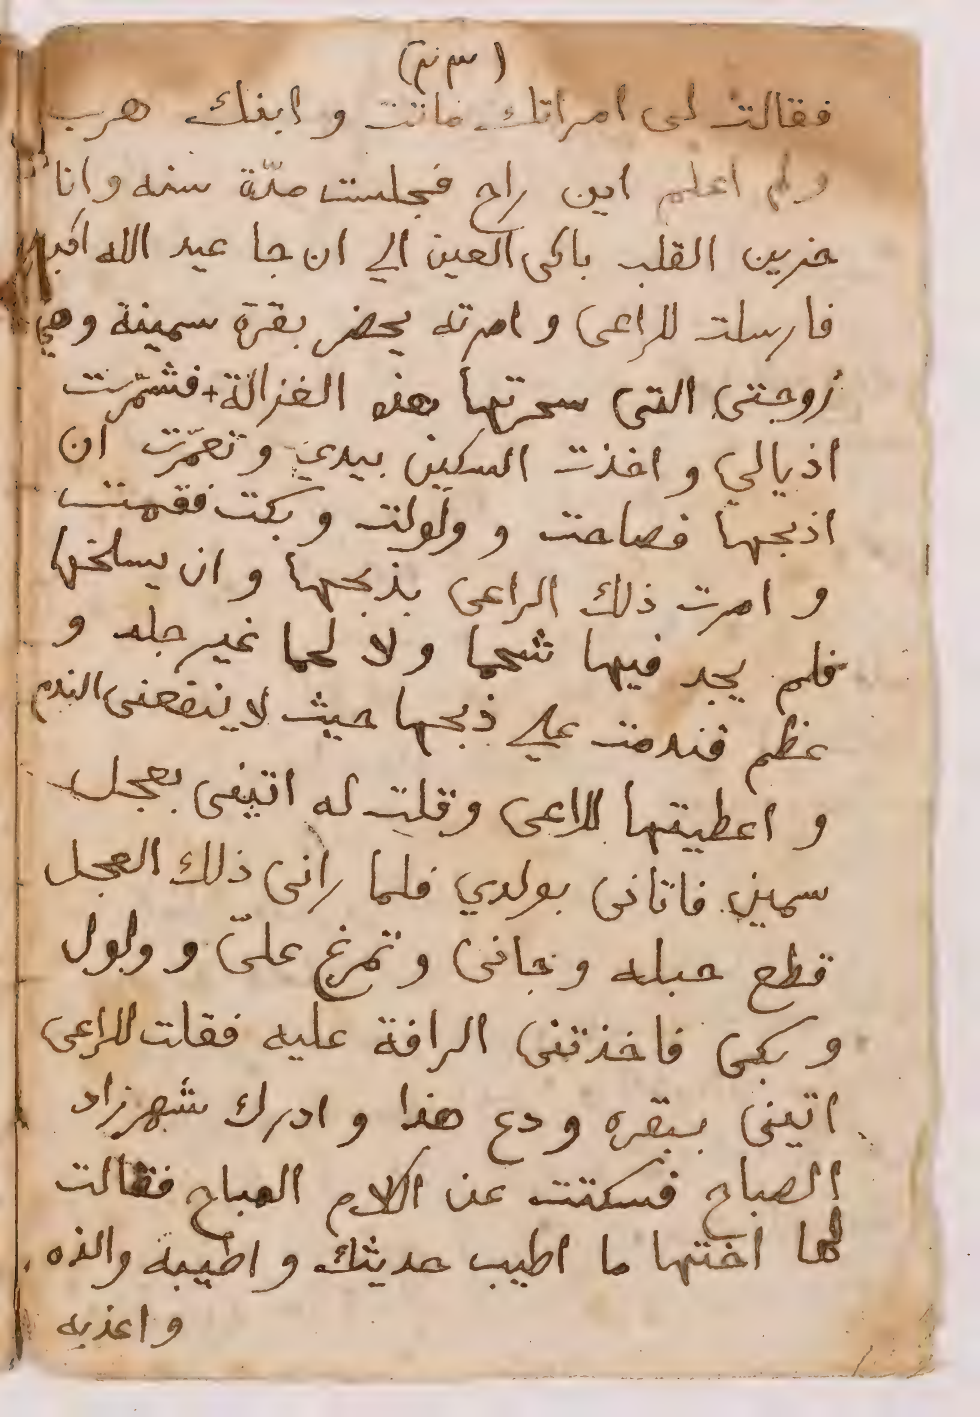 (٢٣)
فقالت لى امراتك ماتت و ابنك هرب
ولم اعلم اين راح فجلست مدّة سنه وانا
حزين القلب باكى العين الي ان جا عيد الله اكبر
فارسلت للراعى و امرته يحضر بقرة سمينة وهي
زوجتى التى سحرتها هذه الغزالة فشمّرت
اذيالي و اخذت السكين بيدي و تعمّرت ان
اذبحها فصاحت و ولولت و بكت فقمت
و امرت ذلك الراعى بذبحها و ان يسلخها
فلم يجد فيها شحما ولا لحما غير جلد و
عظم فندمت علي ذبحها حيث لا ينفعنى الندم
و اعطيتها للراعى وقلت له اتينى بعجل
سمين فاتانى بولدي فلما رانى ذلك العجل
قطع حبله و جانى و تمرغ علىّ و ولول
و بكى فاخذتنى الرافة عليه فقلت للراعى
اتينى ببقره ودع هذا و ادرك شهرزاد
الصباح فسكتت عن الكلام المباح فقالت
لها اختها ما اطيب حديثك و اطيبه والذه
واعذبه